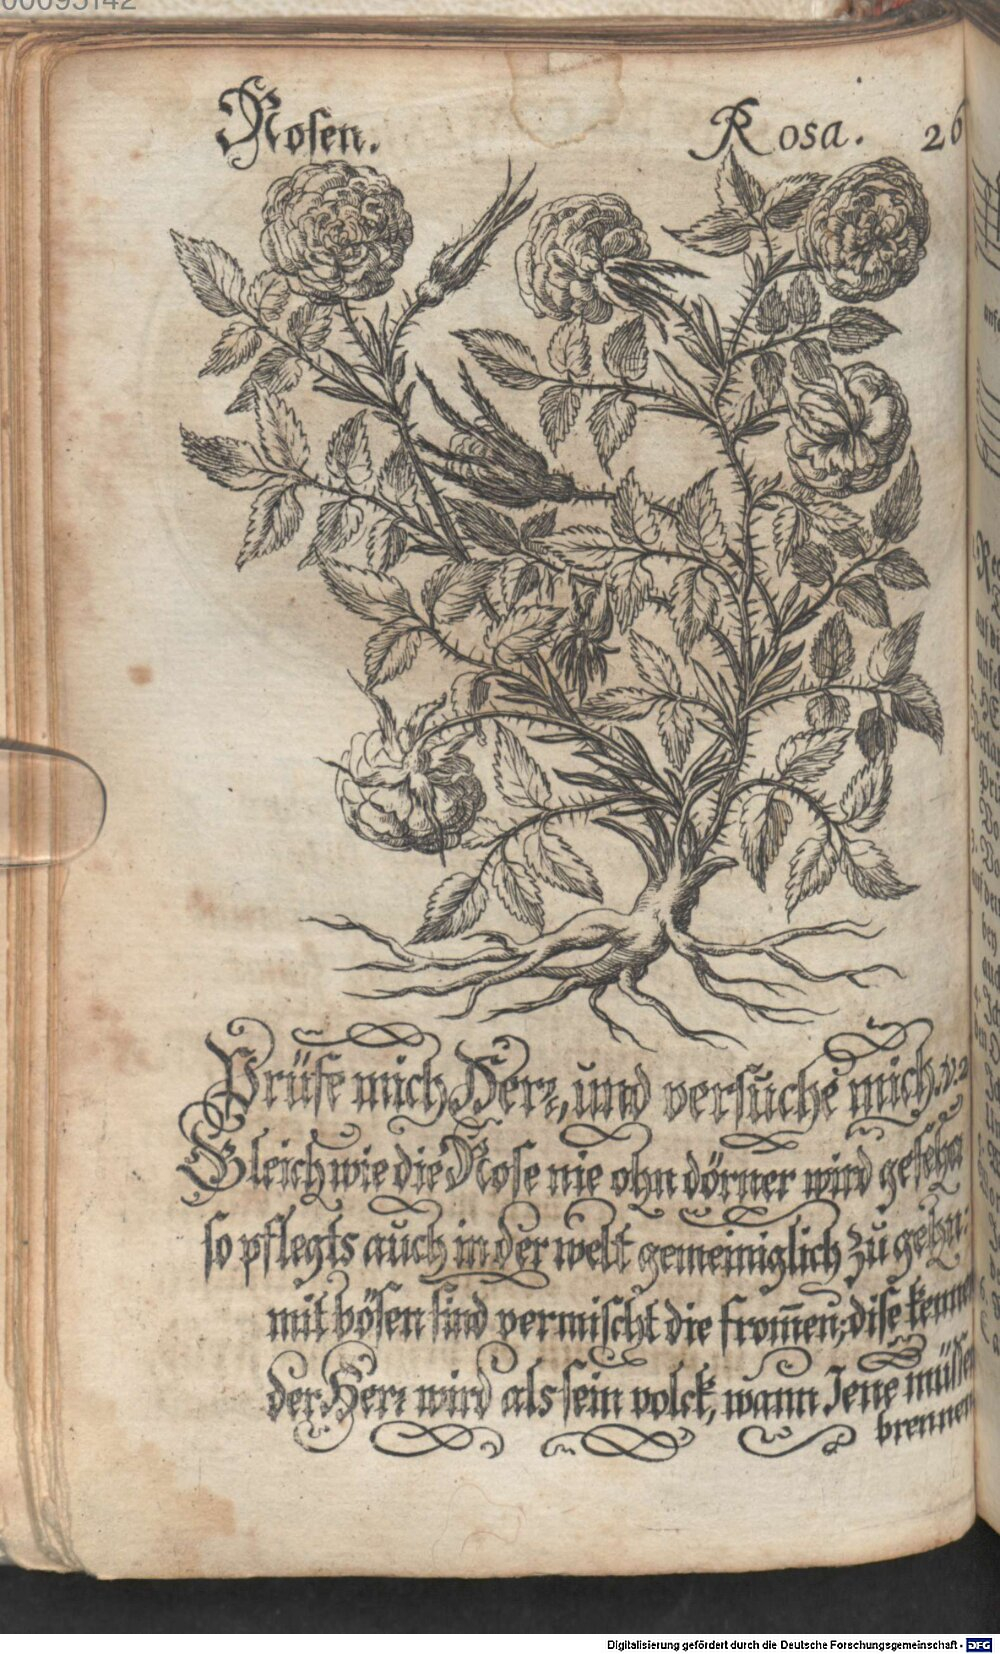 00095142
Rosen. Rosa. 26
Prüfe mich Herr, und versuche mich. v. 2
Gleich wie die Rose nie ohn dörner wird gesehn
so pflegts auch in der welt gemeiniglich zu gehn:
mit bösen sind vermischt die from̅en; dise kennen
der Herr wird als sein volck, wann Jene müssen
brennen
Digitalisierung gefördert durch die Deutsche Forschungsgemeinschaft - DFG